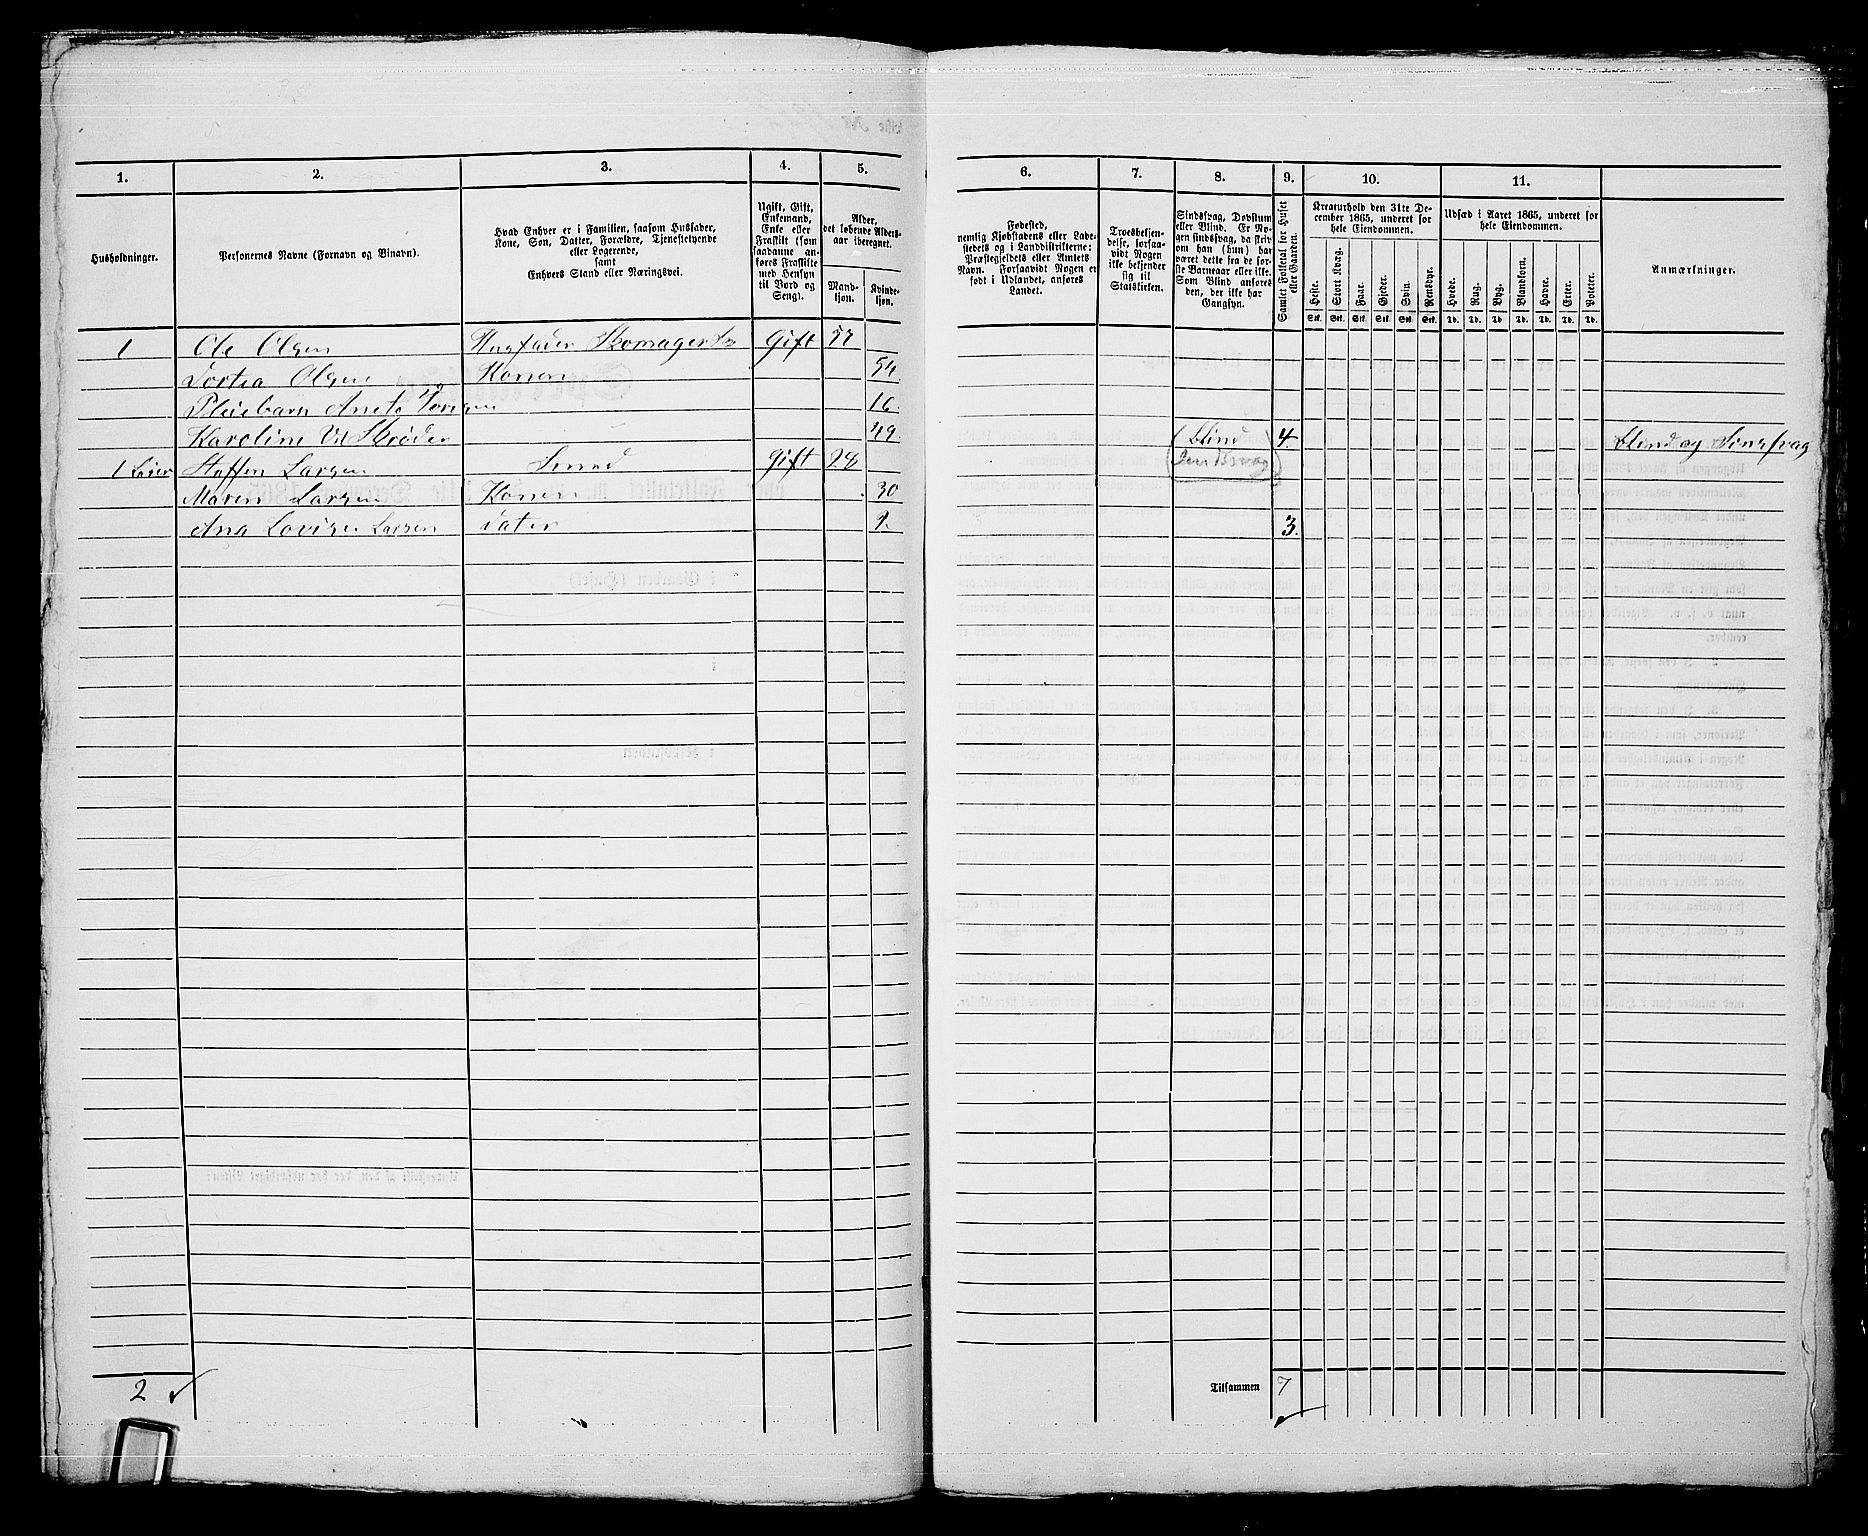 1. 2. 3. 4. 5. 6. 7. 8. 9. 10. 11.
Husholdninger.
Personernes Navne (Fornavn og Binavn).
Hvad Enhver er i Familien, saasom Husfader,
Kone, Søn, Datter, Forældre, Tjenestetyende
eller Logerende,
samt
Enhvers Stand eller Næringsvei.
Ugift, Gift,
Enkemand,
Enke eller
Fraskilt (som
saadanne an-
føres Fraskilte
med Hensyn
til Bord og
Seng).
Alder,
det løbende Alders-
aar iberegnet.
Mand-
kjøn.
Kvinde-
kjøn.
Fødested,
nemlig Kjøbstadens eller Lade-
stedets og i Landdistrikterne:
Præstegjeldets eller Amtets
Navn. Forsaavidt Nogen er
født i Udlandet, anføres
Landet.
Troesbekjen-
delse, forsaa-
vidt Nogen
ikke bekjender
sig til
Statskirken.
Sindssvag, Døvstum
eller Blind. Er No-
gen sindssvag, da skriv
om han (hun) har
været dette fra de før-
ste Barneaar eller ikke.
Som Blind anføres
den, der ikke har
Gangsyn.
Samlet Folketal for Huset
eller Gaarden.
Kreaturhold den 31te De-
cember 1865, underet for
hele Eiendommen.
Heste. Stort Kvæg. Faar. Gjeder. Svin. Rensdyr.
Stk. Stk. Stk. Stk. Stk. Stk.
Udsæd i Aaret 1865, underet for
hele Eiendommen.
Hvede. Rug. Byg. Blandkorn. Havre. Erter. Poteter.
Td. Td. Td. Td. Td. Td. Td.
Anmærkninger.
1 Ole Olsen Husfader Skomager Gift 57
Olsen Konen 54.
Pleiebarn 16.
Karoline 49. (blind 4. blind og
1 Steffen Larsen Smed Gift 28
Maren Larsen Konen 30
Ana Lovise Larsen 3.
2
Tilsammen 7